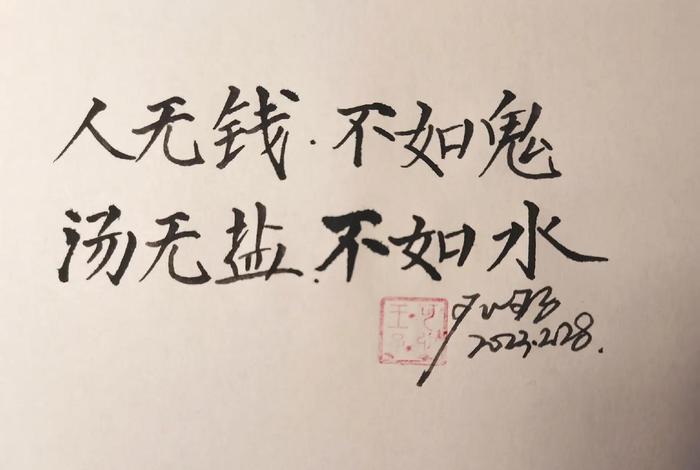 人无钱.不如鬼
汤无盐.不如水
2023.2.28.